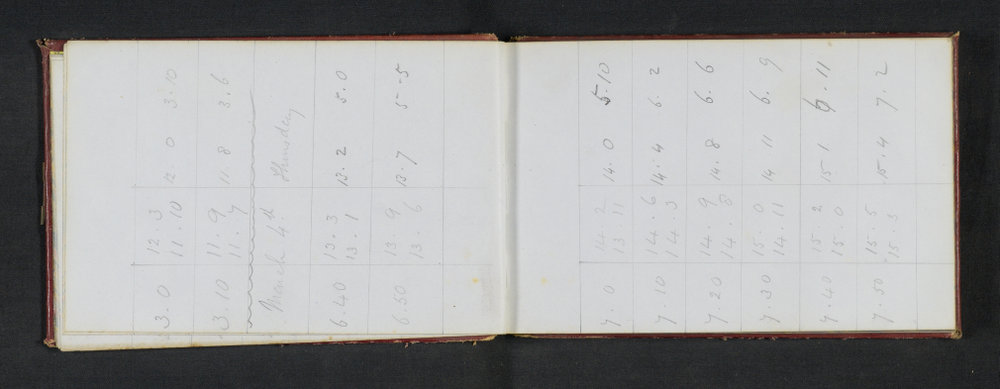 3.0 12.3 12 0 3.10
11.10
3.10 11.9 11.8 3.6
11.7
March 4th Thursday
6.40 13.3 13.2 5.0
13.1
6.50 13.9 13.7 5.5
13.6
7.0 14.2 14.0 5.10
13.11
7.10 14.6 14.4 6.2
14.3
7.20 14.9 14.8 6.6
14.8
7.30 15.0 14 11 6.9
14.11
7.40 15.2 15 1 6.11
15.0
7.50 15.5 15.4 7.2
15.3